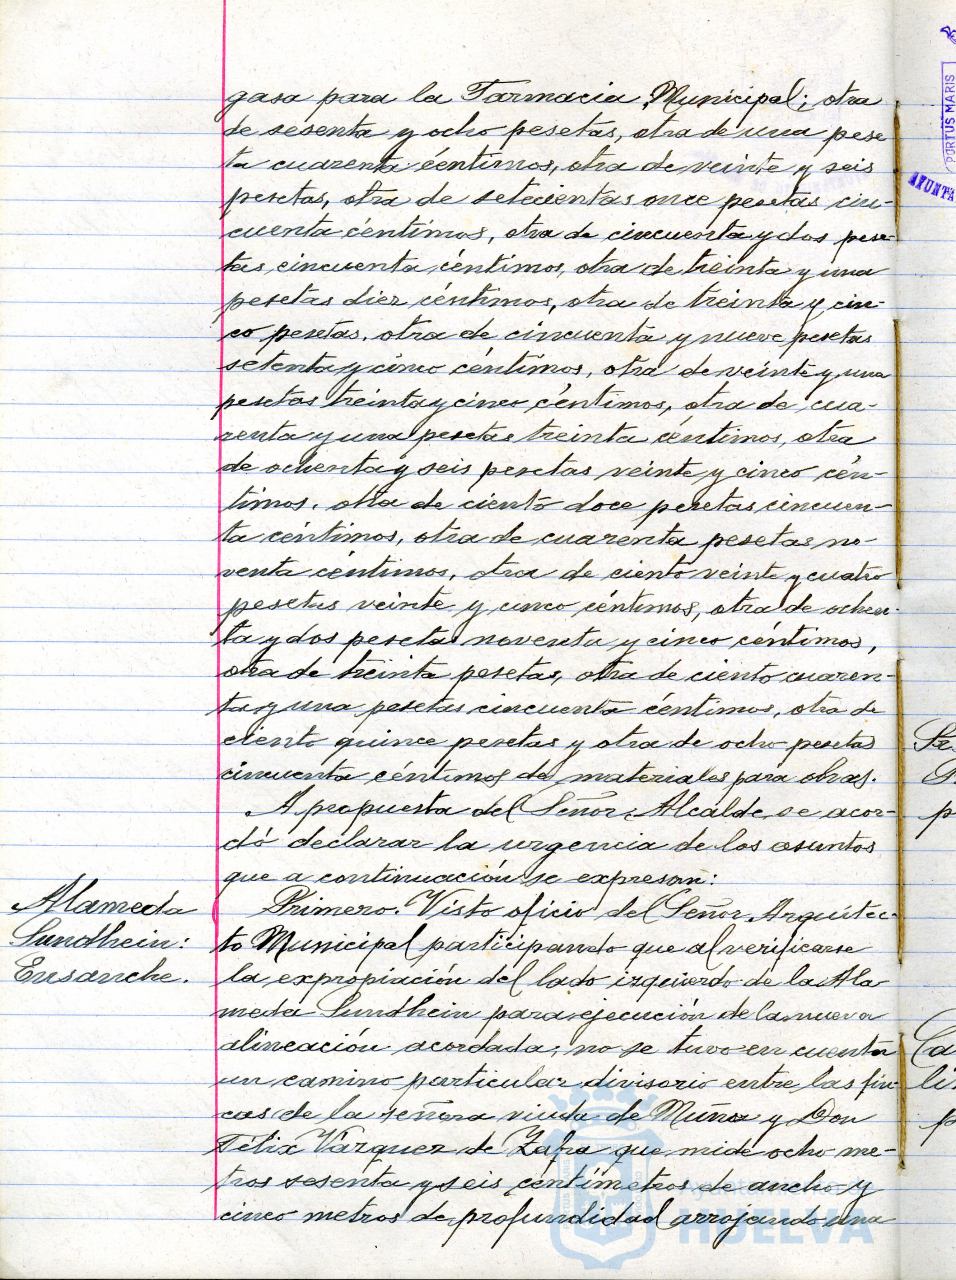 gasa para la Farmacia Municipal; otra
de sesenta y ocho pesetas, otra de una pese
ta cuarenta céntimos, otra de veinte y seis
pesetas, otra de setecientas once pesetas cin-
cuenta céntimos, otra de cincuenta y dos pese-
tas cincuenta céntimos, otra de treinta y una
pesetas diez céntimos, otra de treinta y cin-
co pesetas, otra de cincuenta y nueve pesetas
setenta y cinco céntimos, otra de veinte y una
pesetas treinta y cinco céntimos, otra de cua-
renta y una pesetas treinta céntimos, otra
de ochenta y seis pesetas veinte y cinco cén-
timos, otra de ciento doce pesetas cincuen-
ta céntimos, otra de cuarenta pesetas no-
venta céntimos, otra de ciento veinte y cuatro
pesetas veinte y cinco céntimos, otra de ochen-
ta y dos pesetas noventa y cinco céntimos,
otra de treinta pesetas, otra de ciento cuaren-
ta y una pesetas cincuenta céntimos, otra de
ciento quince pesetas y otra de ocho pesetas
cincuenta céntimos de materiales para obras.
A propuesta del Señor Alcalde, se acor-
dó declarar la urgencia de los asuntos
que a continuación se expresan:
Alameda
Sundhein:
Ensanche.
Primero. Visto oficio del Señor Arquitec-
to Municipal participando que al verificarse
la expropiación del lado izquierdo de la Ala
meda Sundhein para ejecución de la nueva
alineación acordada, no se tuvo en cuenta
un camino particular divisorio entre las fin-
cas de la señora viuda de Muñoz y Don
Felix Vázquez de Zafra que mide ocho me-
tros sesenta y seis céntímetros de ancho y
cinco metros de profundidad arrojando una
PORTUS MARIS
AYUNTA
Ayuntamiento de
HUELVA